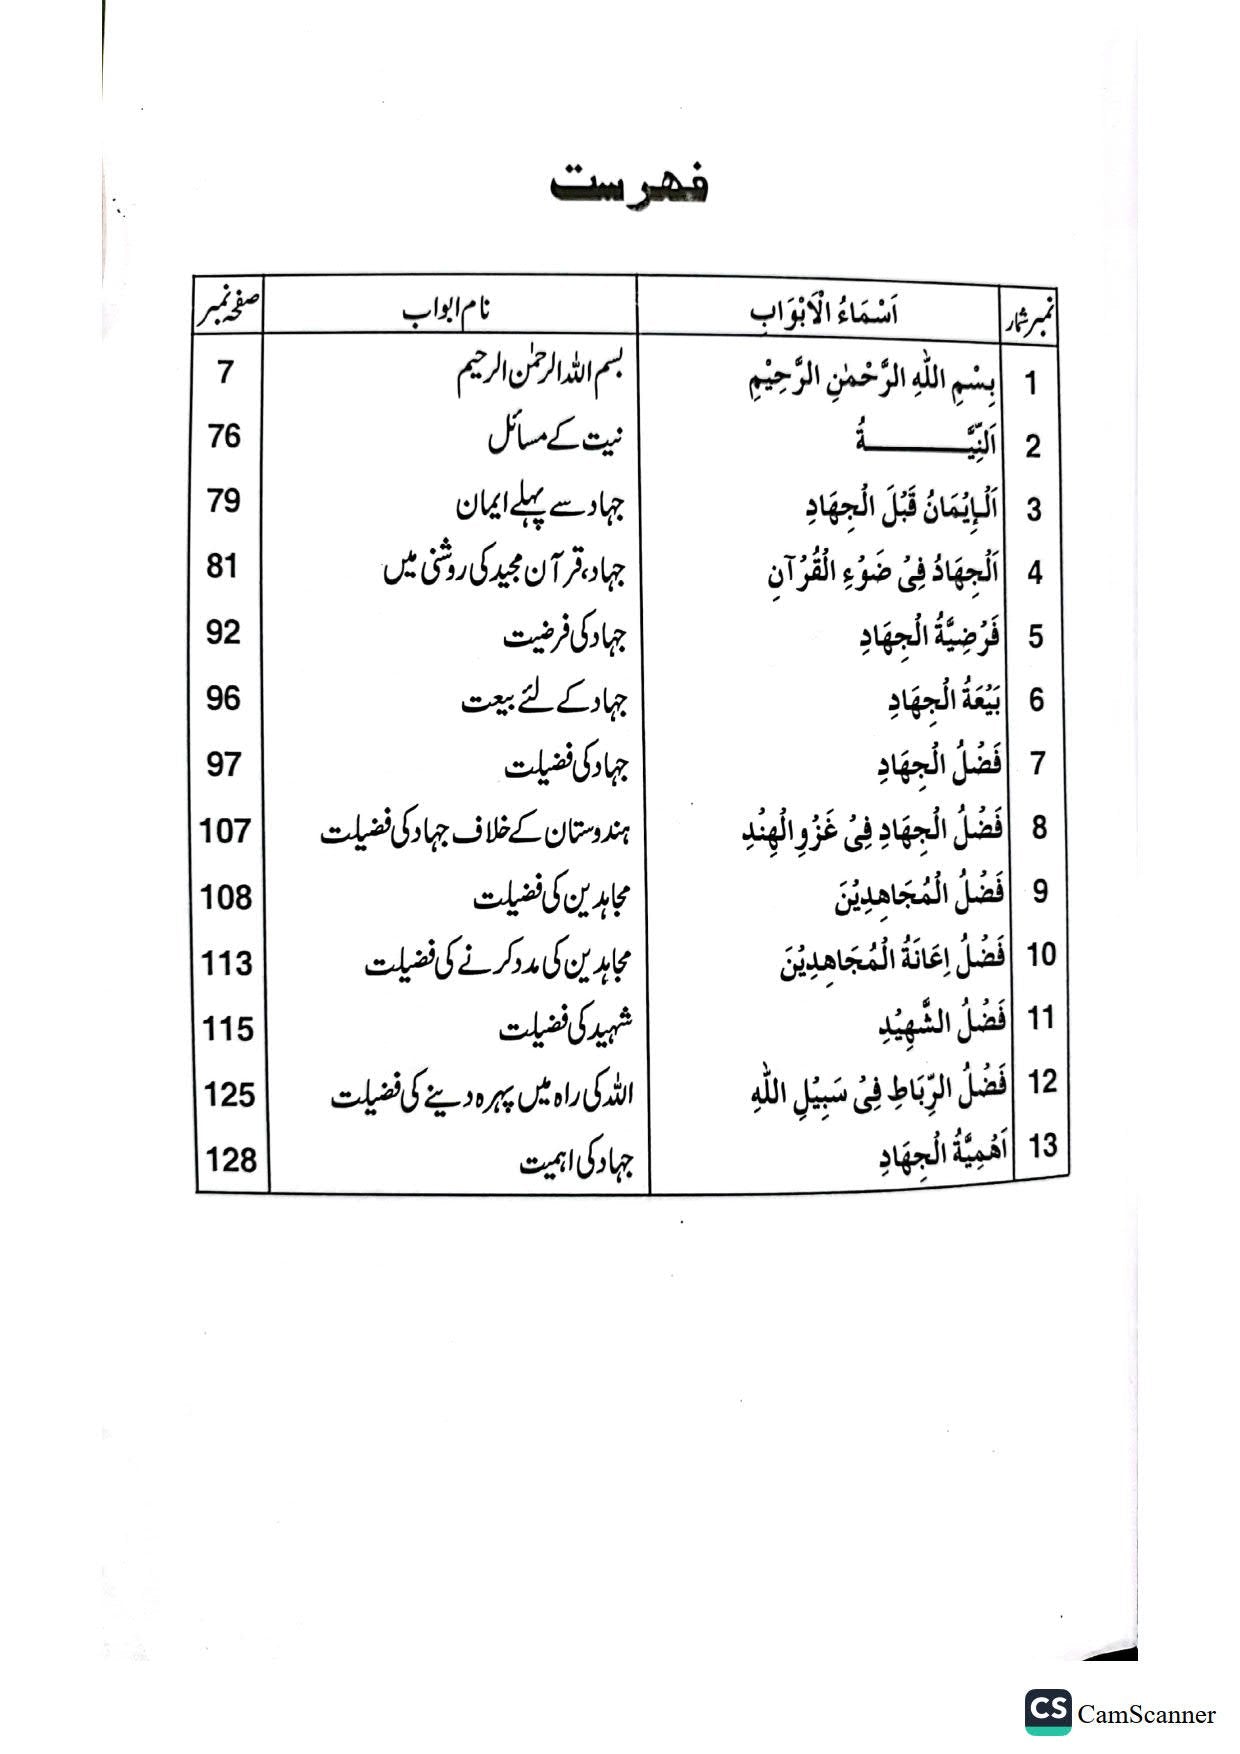 فہرست
نمبر شمار اَسْمَاءُ الْاَبْوَابِ نام ابواب صفحہ نمبر
1 بِسْمِ اللّٰهِ الرَّحْمٰنِ الرَّحِيْمِ بسم اللہ الرحمٰن الرحیم 7
2 اَلنِّيَّــــــــــةُ نیت کے مسائل 76
3 اَلْإِيْمَانُ قَبْلَ الْجِهَادِ جہاد سے پہلے ایمان 79
4 اَلْجِهَادُ فِيْ ضَوْءِ الْقُرْآنِ جہاد، قرآن مجید کی روشنی میں 81
5 فَرْضِيَّةُ الْجِهَادِ جہاد کی فرضیت 92
6 بَيْعَةُ الْجِهَادِ جہاد کے لئے بیعت 96
7 فَضْلُ الْجِهَادِ جہاد کی فضیلت 97
8 فَضْلُ الْجِهَادِ فِيْ غَزْوِ الْهِنْدِ ہندوستان کے خلاف جہاد کی فضیلت 107
9 فَضْلُ الْمُجَاهِدِيْنَ مجاہدین کی فضیلت 108
10 فَضْلُ اِعَانَةُ الْمُجَاهِدِيْنَ مجاہدین کی مدد کرنے کی فضیلت 113
11 فَضْلُ الشَّهِيْدِ شہید کی فضیلت 115
12 فَضْلُ الرِّبَاطِ فِيْ سَبِيْلِ اللّٰهِ اللہ کی راہ میں پہرہ دینے کی فضیلت 125
13 اَهْمِيَّةُ الْجِهَادِ جہاد کی اہمیت 128
CS CamScanner